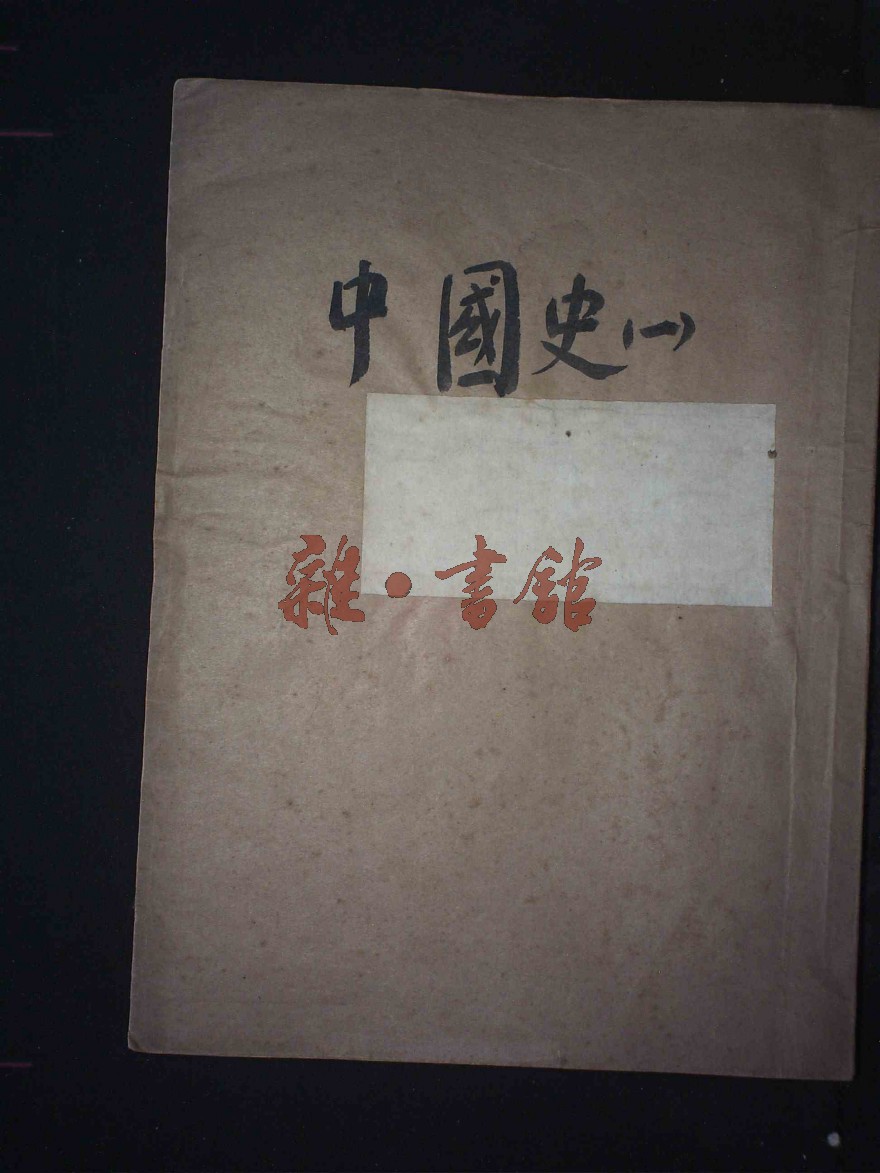 中國史(一)
雜·書館